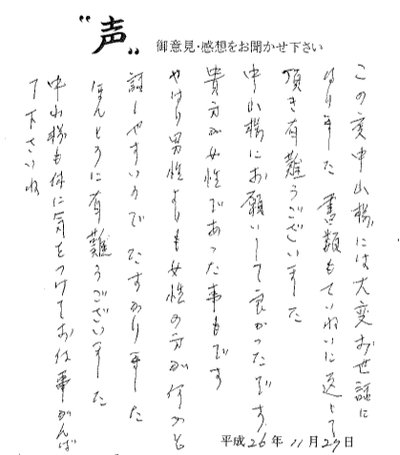 "声"
御意見・感想をお聞かせ下さい
この度中山様には大変お世話に
なりました 書類もていねいに送って
頂き有難うございました
中山様にお願いして良かったです
貴方が女性であった事もです
やはり男性よりも女性の方が何かと
話しやすいのでたすかりました
ほんとうに有難うございました
中山様も体に気をつけてお仕事がんば
って下さいね
平成26年11月27日